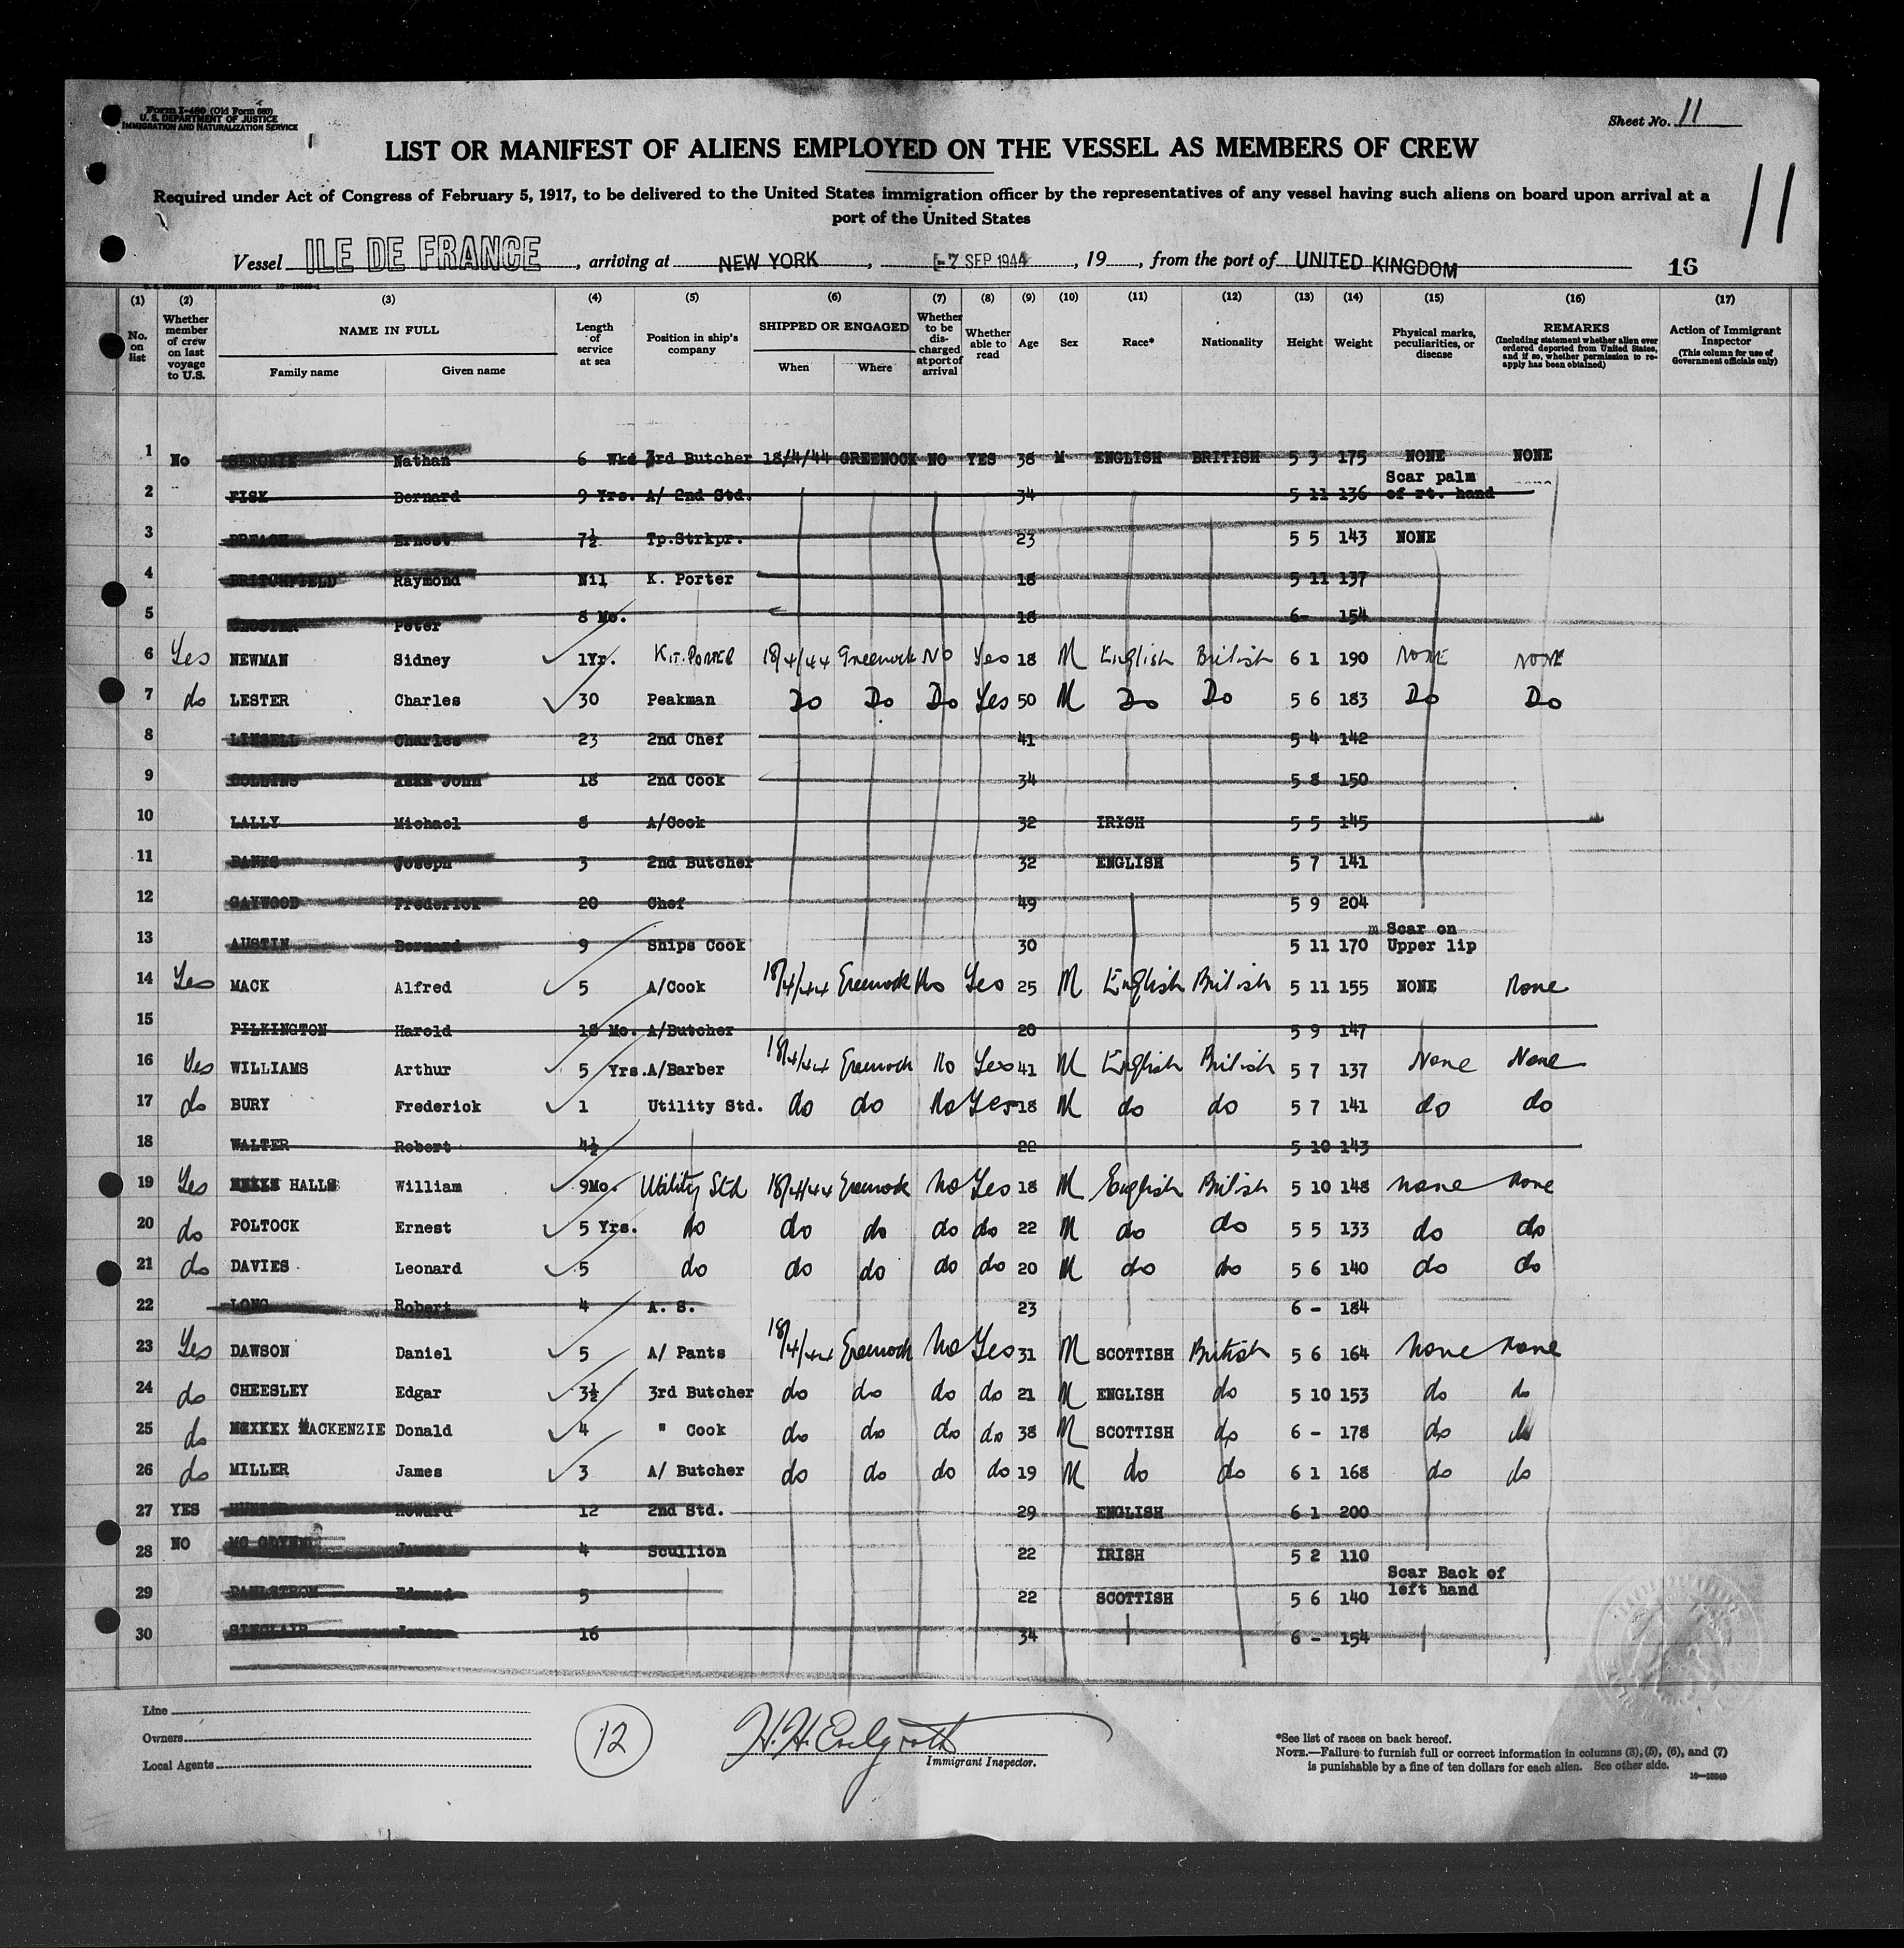 Form I-480 (Old Form 680)
U. S. DEPARTMENT OF JUSTICE
IMMIGRATION AND NATURALIZATION SERVICE
Sheet No. 11
LIST OR MANIFEST OF ALIENS EMPLOYED ON THE VESSEL AS MEMBERS OF CREW
Required under Act of Congress of February 5, 1917, to be delivered to the United States immigration officer by the representatives of any vessel having such aliens on board upon arrival at a
port of the United States
11
Vessel ILE DE FRANCE, arriving at NEW YORK, -7 SEP 1944, 19, from the port of UNITED KINGDOM 16
(1) (2) (3) (4) (5) (6) (7) (8) (9) (10) (11) (12) (13) (14) (15) (16) (17)
No. on list
Whether member of crew on last voyage to U.S.
NAME IN FULL
Family name Given name
Length of service at sea
Position in ship's company
SHIPPED OR ENGAGED
When Where
Whether to be discharged at port of arrival
Whether able to read
Age
Sex
Race*
Nationality
Height
Weight
Physical marks, peculiarities, or disease
REMARKS
(Including statement whether alien ever ordered deported from United States, and if so, whether permission to reapply has been obtained)
Action of Immigrant Inspector
(This column for use of Government officials only)
1 No Nathan 6 Wks 3rd Butcher 18/4/44 GREENOCK NO YES 38 M ENGLISH BRITISH 5 3 175 NONE NONE
2 FISK Bernard 9 Yrs. A/ 2nd Std. 34 5 11 136 Scar palm of rt. hand
3 Ernest 7½ Tp.Strkpr. 23 5 5 143 NONE
4 BRITCHFIELD Raymond Nil K. Porter 18 5 11 137
5 Peter 8 Mo. 18 6- 154
6 Yes NEWMAN Sidney 1Yr. KIT. PORTER 18/4/44 Greenock NO Yes 18 M English British 6 1 190 NONE NONE
7 do LESTER Charles 30 Peakman Do Do Do Yes 50 M Do Do 5 6 183 Do Do
8 LINSELL Charles 23 2nd Chef 41 5 4 142
9 John 18 2nd Cook 34 5 8 150
10 LALLY Michael 8 A/Cook 32 IRISH 5 5 145
11 BANKS Joseph 3 2nd Butcher 32 ENGLISH 5 7 141
12 GAYWOOD Frederick 20 Chef 49 5 9 204
13 AUSTIN Bernard 9 Ships Cook 30 5 11 170 Scar on Upper lip
14 Yes MACK Alfred 5 A/Cook 18/4/44 Greenock No Yes 25 M English British 5 11 155 NONE None
15 PILKINGTON Harold 18 Mo. A/Butcher 20 5 9 147
16 Yes WILLIAMS Arthur 5 Yrs. A/Barber 18/4/44 Greenock No Yes 41 M English British 5 7 137 None None
17 do BURY Frederick 1 Utility Std. do do No Yes 18 M do do 5 7 141 do do
18 WALTER Robert 4½ 22 5 10 143
19 Yes HALLS William 9Mo. Utility Std 18/4/44 Greenock No Yes 18 M English British 5 10 148 none none
20 do POLTOCK Ernest 5 Yrs. do do do do do 22 M do do 5 5 133 do do
21 do DAVIES Leonard 5 do do do do do 20 M do do 5 6 140 do do
22 LONG Robert 4 A. S. 23 6 - 184
23 Yes DAWSON Daniel 5 A/ Pants 18/4/44 Greenock No Yes 31 M SCOTTISH British 5 6 164 None None
24 do CHEESLEY Edgar 3½ 3rd Butcher do do do do 21 M ENGLISH do 5 10 153 do do
25 do MACKENZIE Donald 4 " Cook do do do do 38 M SCOTTISH do 6 - 178 do do
26 do MILLER James 3 A/ Butcher do do do do 19 M do do 6 1 168 do do
27 YES HUNTER Howard 12 2nd Std. 29 ENGLISH 6 1 200
28 NO James 4 Scullion 22 IRISH 5 2 110
29 Edward 5 22 SCOTTISH 5 6 140 Scar Back of left hand
30 SINCLAIR James 16 34 6 - 154
Line
Owners
Local Agents
12
Immigrant Inspector.
*See list of races on back hereof.
NOTE.—Failure to furnish full or correct information in columns (3), (5), (6), and (7)
is punishable by a fine of ten dollars for each alien. See other side.